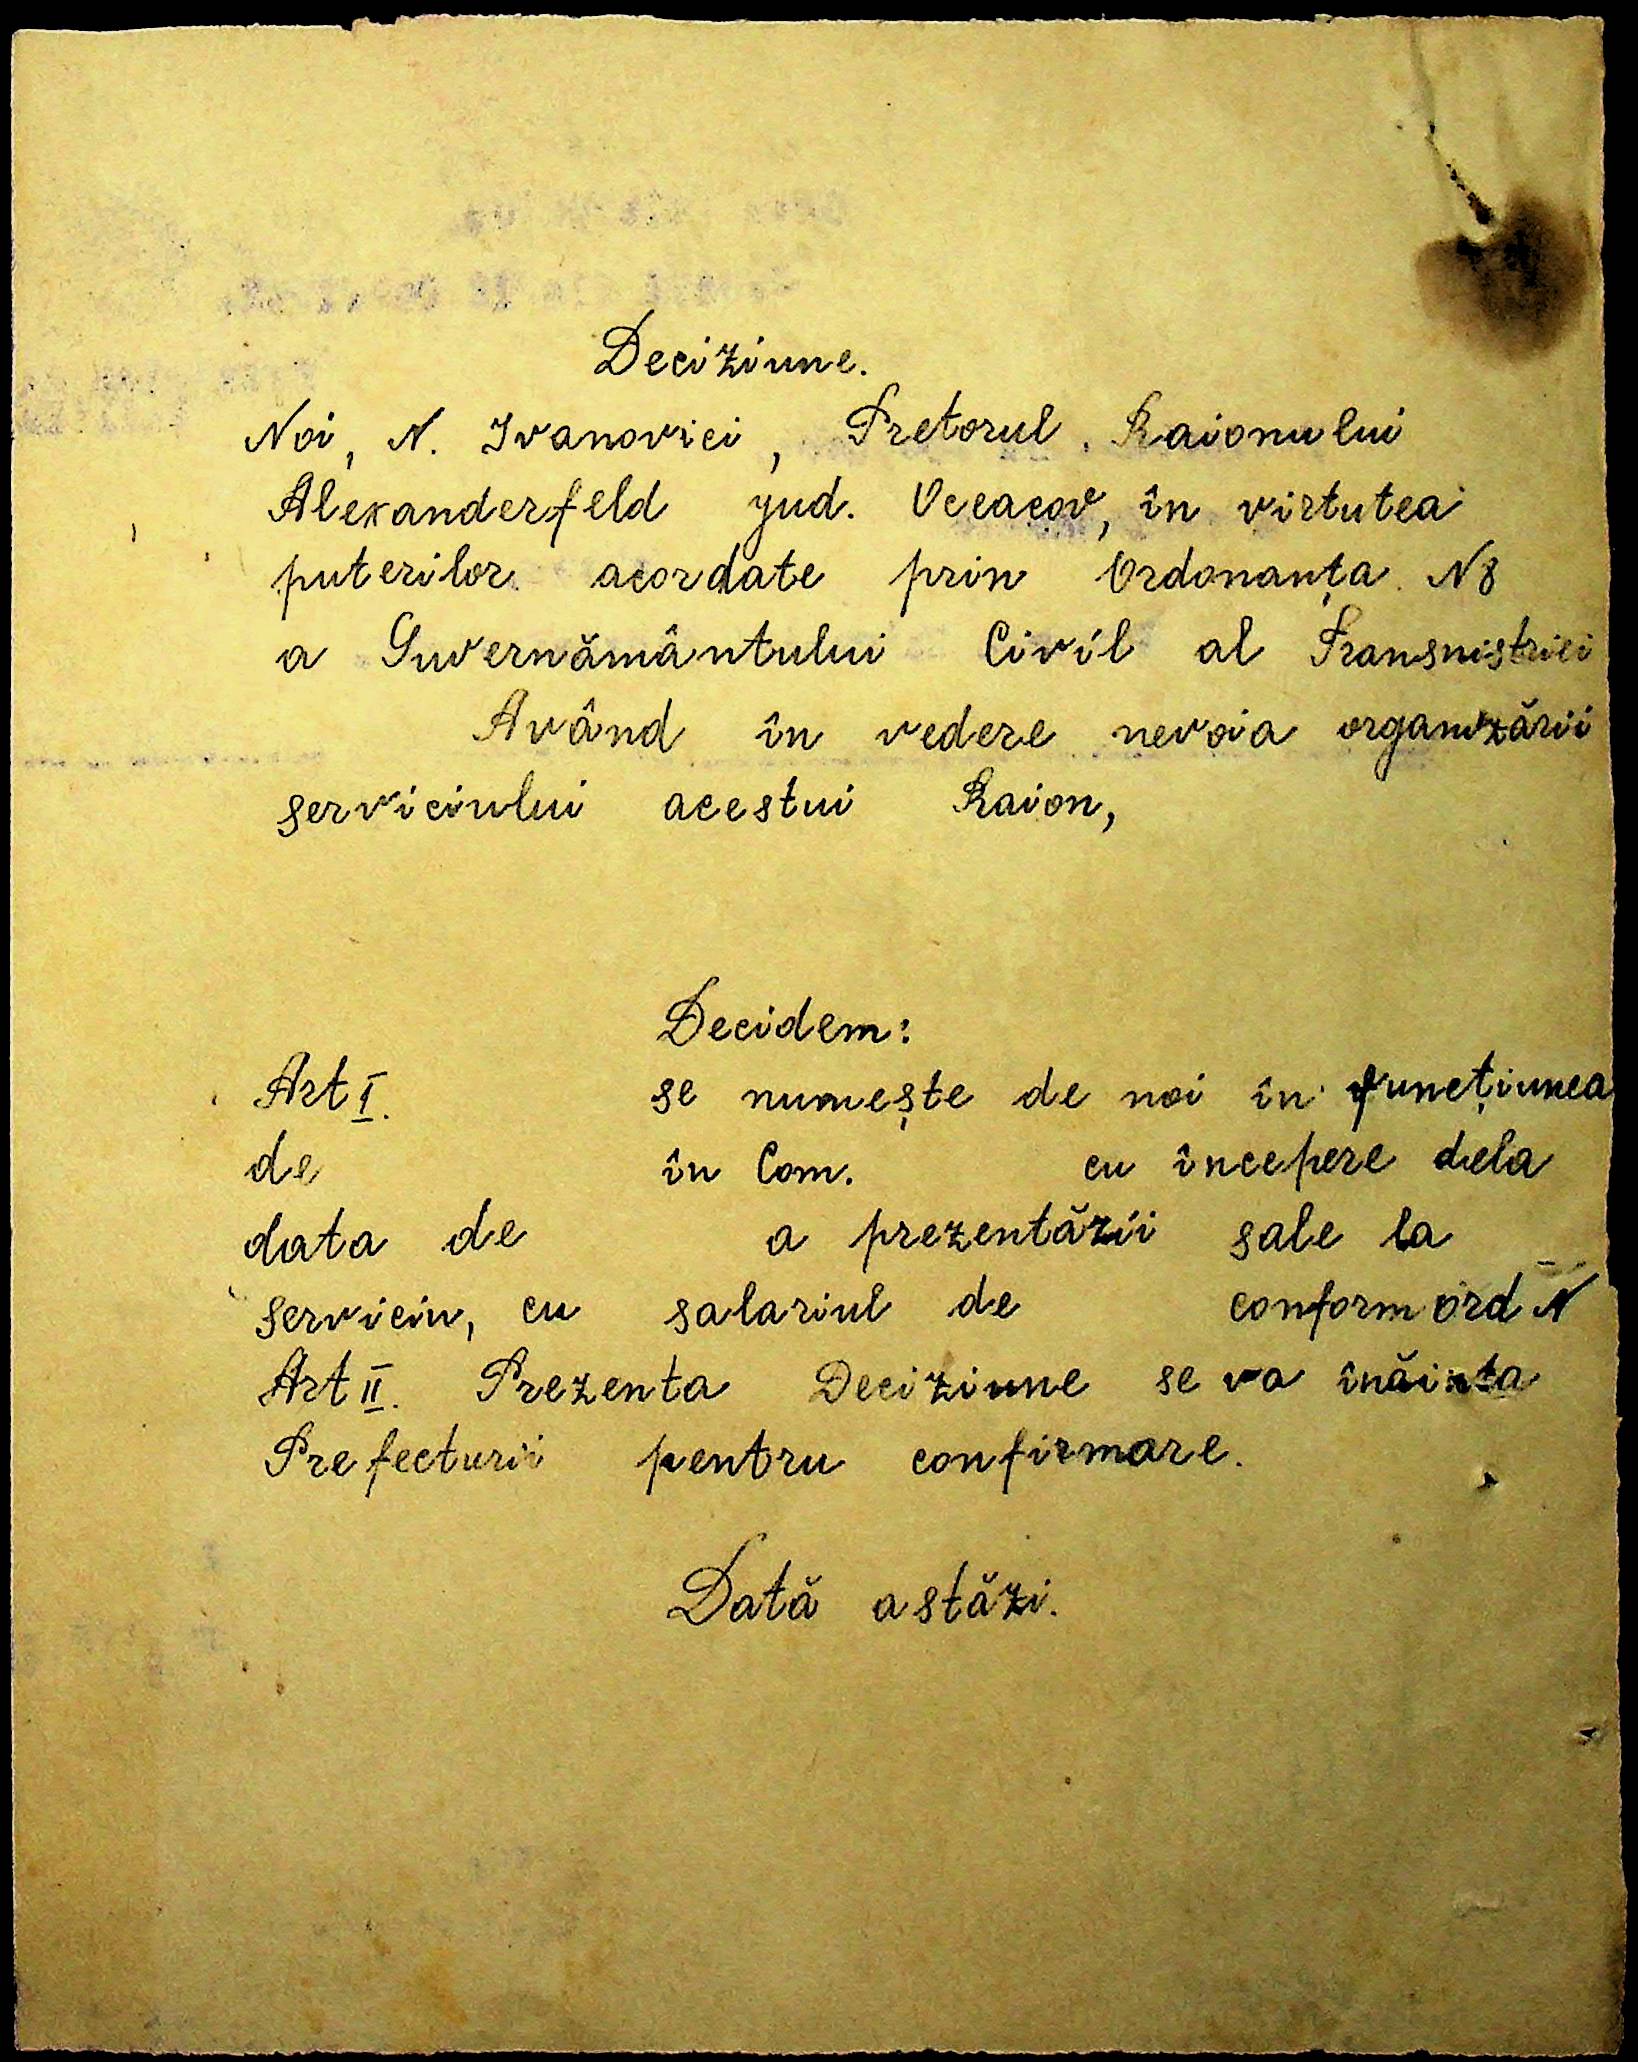 Deciziune.
Noi, N. Ivanovici, Pretorul Raionului
Alexanderfeld jud. Oceacov, în virtutea
puterilor acordate prin Ordonanța N8
a Guvernământului Civil al Transnistriei
Având în vedere nevoia organizării
serviciului acestui Raion,
Decidem:
Art I. se numește de noi în funcțiunea
de în Com. cu începere dela
data de a prezentării sale la
serviciu, cu salariul de conform ord N
Art II. Prezenta Deciziune se va înăinta
Prefecturii pentru confirmare.
Dată astăzi.